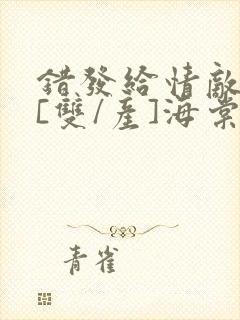 錯發給情敵
[雙/產]海棠
青雀